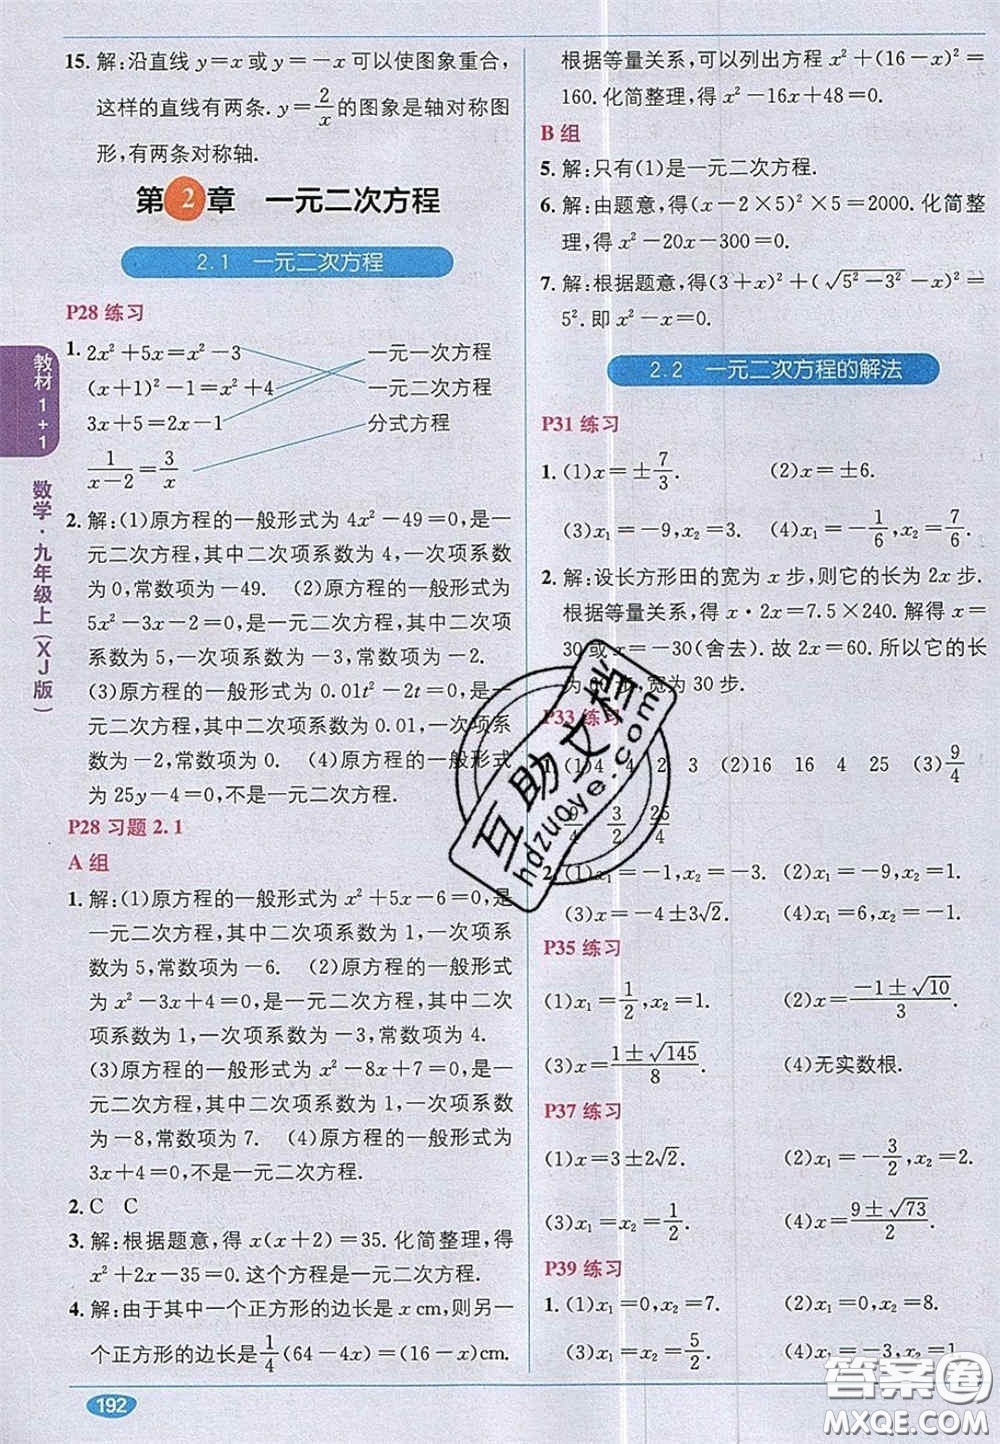 15. 解:沿直线 y=x 或 y=-x 可以使图象重合,
这样的直线有两条. y=2/x 的图象是轴对称图
形,有两条对称轴.
第2章 一元二次方程
2.1 一元二次方程
P28 练习
1. 2x²+5x=x²-3 一元一次方程
(x+1)²-1=x²+4 一元二次方程
3x+5=2x-1 分式方程
1/(x-2)=3/x
2. 解:(1)原方程的一般形式为 4x²-49=0,是一
元二次方程,其中二次项系数为 4,一次项系数
为 0,常数项为 -49. (2)原方程的一般形式为
5x²-3x-2=0,是一元二次方程,其中二次项
系数为 5,一次项系数为 -3,常数项为 -2.
(3)原方程的一般形式为 0.01t²-2t=0,是一
元二次方程,其中二次项系数为 0.01,一次项系
数为 -2,常数项为 0. (4)原方程的一般形式
为 25y-4=0,不是一元二次方程.
P28 习题 2.1
A 组
1. 解:(1)原方程的一般形式为 x²+5x-6=0,是
一元二次方程,其中二次项系数为 1,一次项系
数为 5,常数项为 -6. (2)原方程的一般形式
为 x²-3x+4=0,是一元二次方程,其中二次
项系数为 1,一次项系数为 -3,常数项为 4.
(3)原方程的一般形式为 x²-8x+7=0,是一
元二次方程,其中二次项系数为 1,一次项系数
为 -8,常数项为 7. (4)原方程的一般形式为
3x+4=0,不是一元二次方程.
2. C C
3. 解:根据题意,得 x(x+2)=35. 化简整理,得
x²+2x-35=0. 这个方程是一元二次方程.
4. 解:由于其中一个正方形的边长是 x cm,则另一
个正方形的边长是 1/4(64-4x)=(16-x)cm.
根据等量关系,可以列出方程 x²+(16-x)²=
160. 化简整理,得 x²-16x+48=0.
B 组
5. 解:只有(1)是一元二次方程.
6. 解:由题意,得(x-2×5)²×5=2000. 化简整
理,得 x²-20x-300=0.
7. 解:根据题意,得(3+x)²+(√(5²-3²)-x)²=
5². 即 x²-x=0.
2.2 一元二次方程的解法
P31 练习
1. (1)x=±7/3. (2)x=±6.
(3)x₁=-9,x₂=3. (4)x₁=-1/6,x₂=7/6.
2. 解:设长方形田的宽为 x 步,则它的长为 2x 步.
根据等量关系,得 x·2x=7.5×240. 解得 x=
30 或 x=-30(舍去). 故 2x=60. 所以它的长
为 60 步,宽为 30 步.
P33 练习
1. (1)4 4 2 3 (2)16 16 4 25 (3)9/4
9/4 3/2 25/4
2. (1)x₁=-1,x₂=-3. (2)x₁=9,x₂=1.
(3)x=-4±3√2. (4)x₁=6,x₂=-1.
P35 练习
(1)x₁=1/2,x₂=1. (2)x=(-1±√10)/3.
(3)x=(1±√145)/8. (4)无实数根.
P37 练习
(1)x=3±2√2. (2)x₁=-3/2,x₂=2.
(3)x₁=x₂=1/2. (4)x=(9±√73)/2.
P39 练习
1. (1)x₁=0,x₂=7. (2)x₁=0,x₂=8.
(3)x₁=x₂=5/2. (4)x₁=-3,x₂=1.
教材1+1
数学·九年级上(XJ版)
192
互助文档
hdzuoye.com
答案圈
MXQE.COM